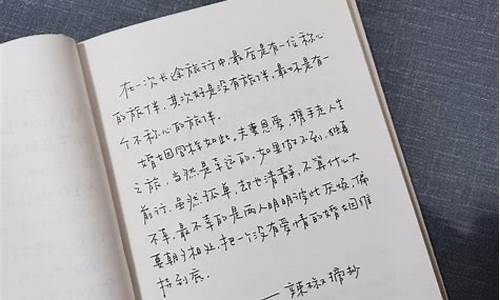 在一次长途旅行中,最后是有一位称心
的旅伴,其次好是没有旅伴,最坏是有一
个不称心的旅伴。
婚姻同样如此。夫妻恩爱,携手走人生
之旅,当然是幸运的。如果做不到,独自
前行,虽然孤单,却也清静,不算什么大
不幸。最不幸的是两人明明彼此厌烦,偏
要朝夕相处,把一个没有爱情的婚姻维
持到底。
——辣椒摘抄